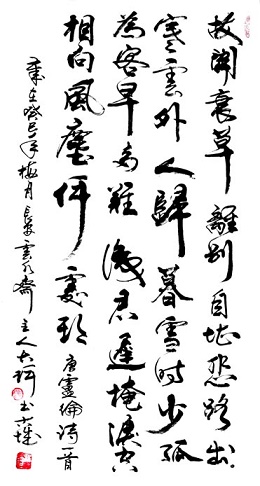 故關衰草離別自堪悲路出
寒雲外人歸暮雪時少孤
為客早多難識君遲掩淚空
相向風塵何處期
唐盧綸詩一首
歲在癸巳年梅月長安雲水齋主人書